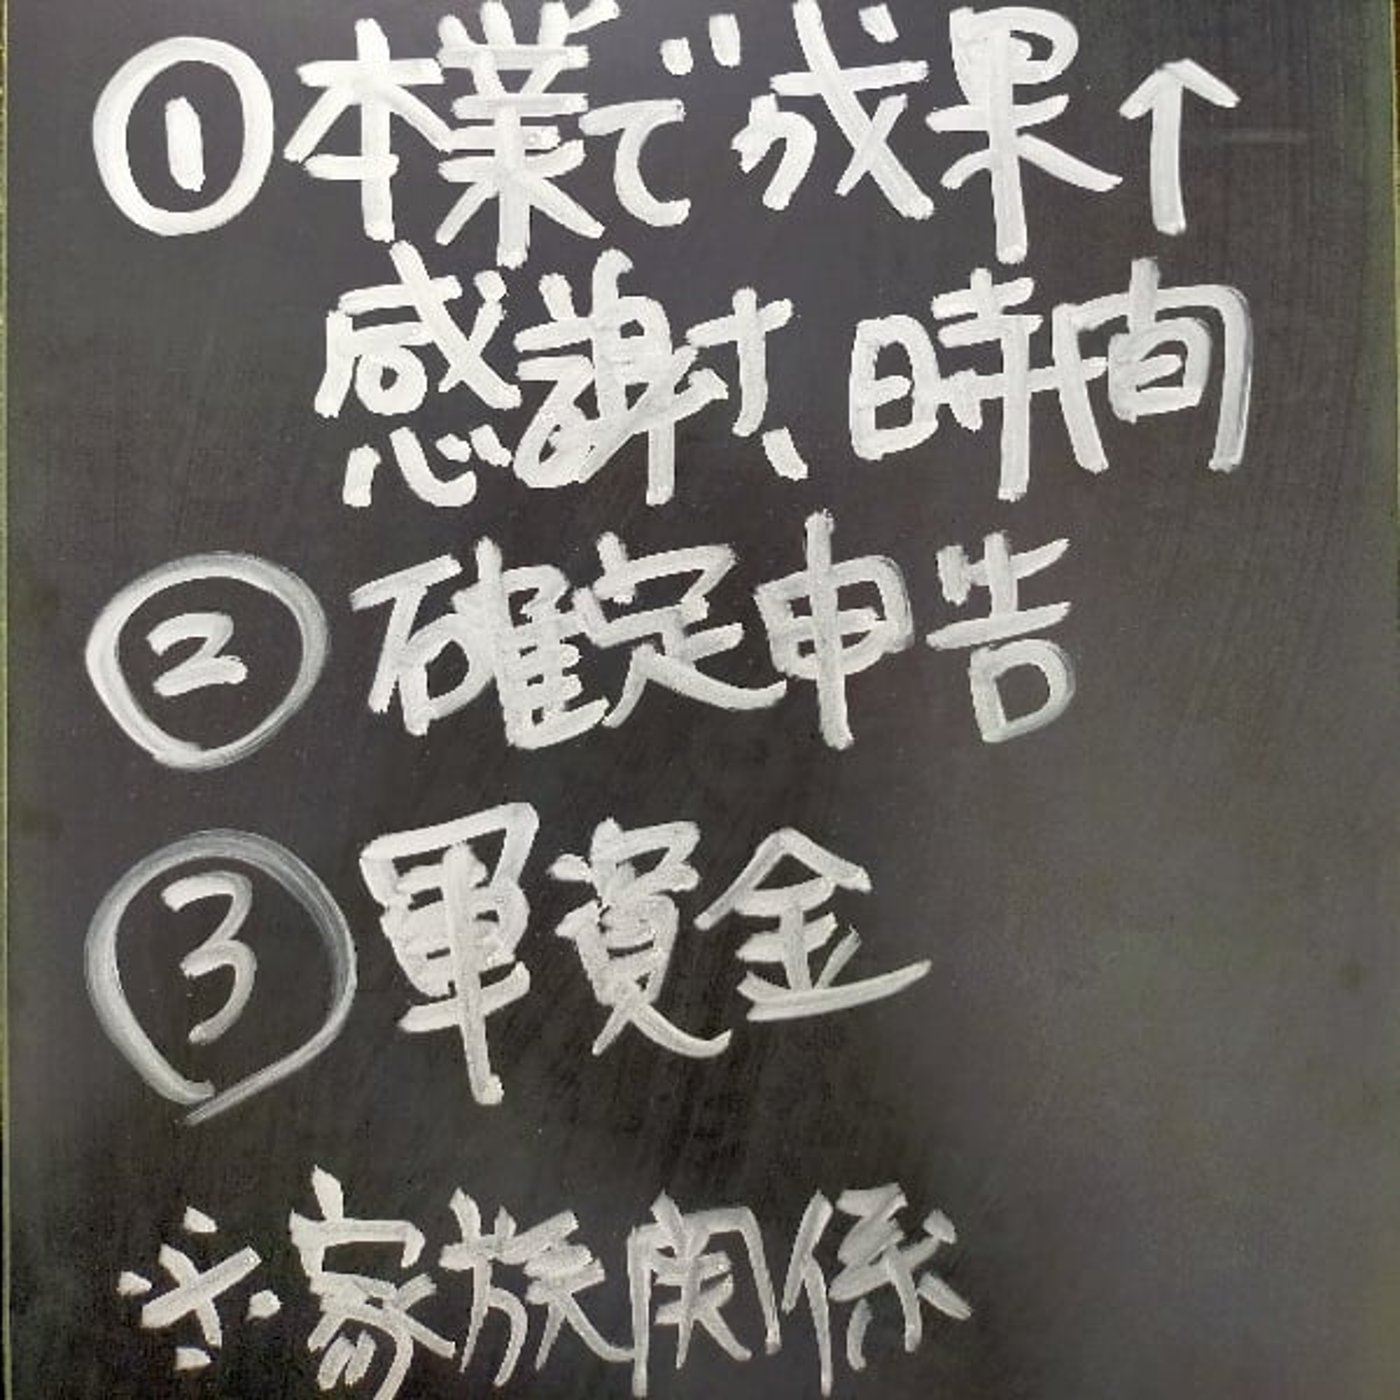 ①本業で成果↑
感謝、時間
②確定申告
③軍資金
※家族関係